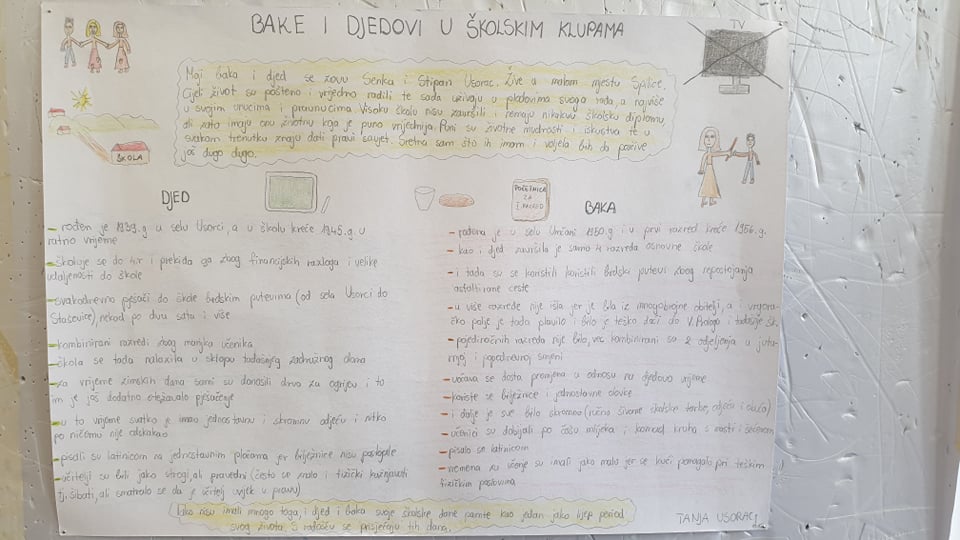 BAKE I DJEDOVI U ŠKOLSKIM KLUPAMA
TV
Moji baka i djed se zovu Senka i Stipan Usorac. Žive u malom mjestu Spilice.
Cijeli život su pošteno i vrijedno radili te sada uživaju u plodovima svoga rada, a najviše
u svojim unucima i praunucima. Visoku školu nisu završili i nemaju nikakvu školsku diplomu,
ali zato imaju onu životnu koja je puno vrijednija. Puni su životne mudrosti i iskustva te u
svakom trenutku znaju dati pravi savjet. Sretna sam što ih imam i voljela bih da požive
još dugo dugo.
ŠKOLA
DJED
- rođen je 1939.g u selu Usorci, a u školu kreće 1945.g. u
ratno vrijeme
- školuje se do 4.r i prekida ga zbog financijskih razloga i velike
udaljenosti do škole
- svakodnevno pješači do škole brdskim putevima (od sela Usorci do
Staševice), nekad po dva sata i više
- kombinirani razredi zbog manjka učenika
- škola se tada nalazila u sklopu tadašnjeg zadružnog doma
- za vrijeme zimskih dana sami su donosili drva za ogrijev i to
im je još dodatno otežavalo pješačenje
- u to vrijeme svatko je imao jednostavnu i skromnu odjeću i nitko
po ničemu nije odskakao
- pisali su latinicom na jednostavnim pločama jer bilježnice nisu postojale
- učitelji su bili jako strogi, ali pravedni (često se znalo i fizički kažnjavati
tj. šibati, ali smatralo se da je učitelj uvijek u pravu)
POČETNICA
ZA
1. RAZRED
BAKA
- rođena je u selu Umčani 1950.g i u prvi razred kreće 1956.g.
- kao i djed završila je samo 4 razreda osnovne škole
- i tada su se koristili koristili brdski putevi zbog nepostojanja
asfaltirane ceste
- u više razrede nije išla jer je bila iz mnogobrojne obitelji, a i vrgora-
čko polje je tada plavilo i bilo je teško doći do V. Prologa i tadašnje šk.
- pojedinačnih razreda nije bilo, već kombinirani sa 2 odjeljenja u juta-
rnjoj i popodnevnoj smjeni
- uočava se dosta promjena u odnosu na djedovo vrijeme
- koriste se bilježnice i jednostavne olovke
- i dalje je sve bilo skromno (ručno šivane školske torbe, odjeća i obuća)
- učenici su dobijali po čašu mlijeka i komad kruha s masti i šećerom
- pisalo se latinicom
- vremena za učenje su imali jako malo jer se kući pomagalo pri teškim
fizičkim poslovima
Iako nisu imali mnogo toga, i djed i baka svoje školske dane pamte kao jedan jako lijep period
svog života. S radošću se prisjećaju tih dana.
TANJA USORAC